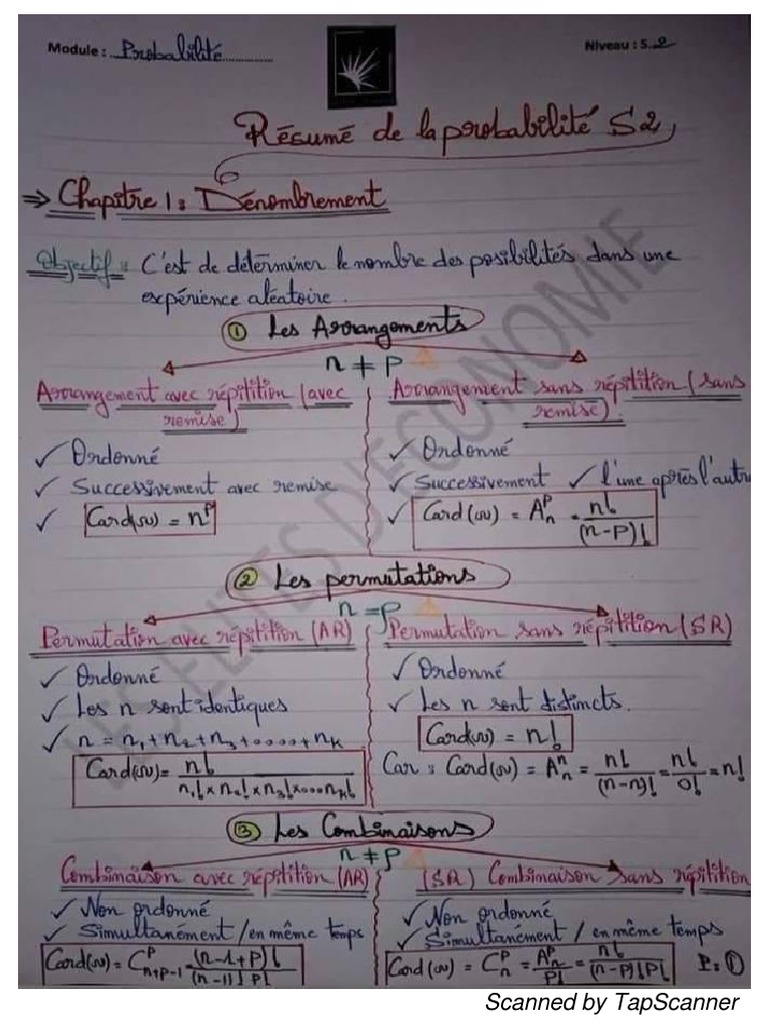 Module : Probabilité
Niveau : S.2
Résumé de la probabilité S2
⇒ Chapitre 1 : Dénombrement
Objectif : C'est de déterminer le nombre des posibilités dans une
expérience aléatoire.
① Les Arrangements
n ≠ p
Arrangement avec répitition (avec
remise)
✓ Ordonné
✓ Successivement avec remise
✓ Card(ω) = n^p
Arrangement sans répitition (sans
remise).
✓ Ordonné
✓ Successivement ✓ l'une après l'autre
✓ Card(ω) = A_n^p = n!/(n-p)!
② Les permutations
n = p
Permutation avec répitition (AR)
✓ Ordonné
✓ Les n sont identiques
✓ n = n1 + n2 + n3 + .... + nK
Card(ω) = n!/(n1! × n2! × n3! × ... nK!)
Permutation sans répitition (SR)
✓ Ordonné
✓ Les n sont distincts.
Card(ω) = n!
Car : Card(ω) = A_n^n = n!/(n-n)! = n!/0! = n!
③ Les Combinaisons
n ≠ p
Combinaison avec répitition (AR)
✓ Non ordonné
✓ Simultanément / en même temps
Card(ω) = C_{n+p-1}^p = (n-1+p)!/((n-1)! p!)
(SR) Combinaison sans répitition
✓ Non ordonné
✓ Simultanément / en même temps
Card(ω) = C_n^p = A_n^p/p! = n!/((n-p)! p!)
P : ①
Scanned by TapScanner